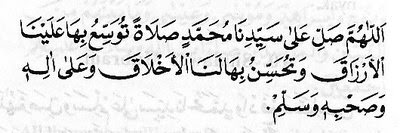 اَللّٰهُمَّ صَلِّ عَلٰى سَيِّدِنَا مُحَمَّدٍ صَلَاةً تُوَسِّعُ بِهَا عَلَيْنَا
الْاَرْزَاقَ وَتُحَسِّنُ بِهَا لَنَا الْاَخْلَاقَ وَعَلٰى اٰلِهٖ
وَصَحْبِهٖ وَسَلِّمْ.